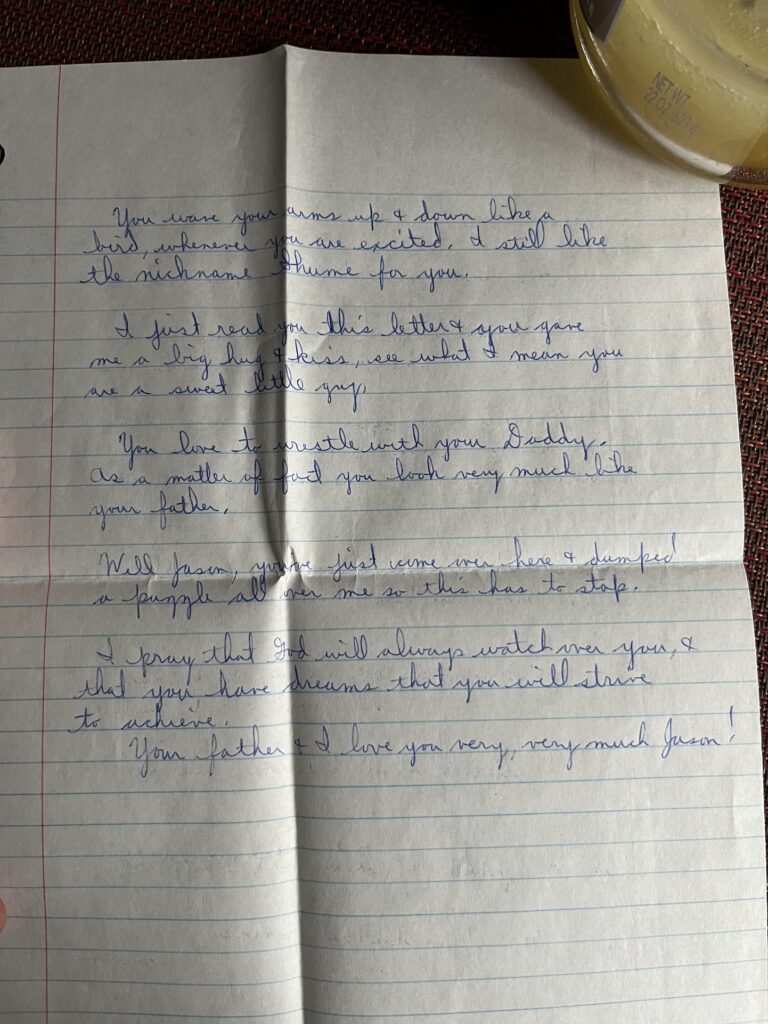 NET WT
22 OZ (623 g)
You wave your arms up & down like a
bird, whenever you are excited. I still like
the nickname for you.
I just read you this letter & you gave
me a big hug & kiss, see what I mean you
are a sweet little guy.
You love to wrestle with your Daddy.
As a matter of fact you look very much like
your father.
Well Jason, you've just come over here & dumped
a puzzle all over me so this has to stop.
I pray that God will always watch over you, &
that you have dreams that you will strive
to achieve.
Your father & I love you very, very much Jason!